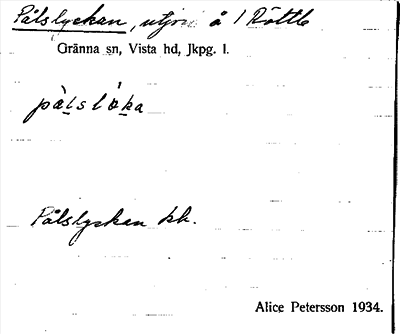 Pålslyckan, utjord å 1 Röttle
Gränna sn, Vista hd, Jkpg. l.
Pålslyckan kk.
Alice Petersson 1934.